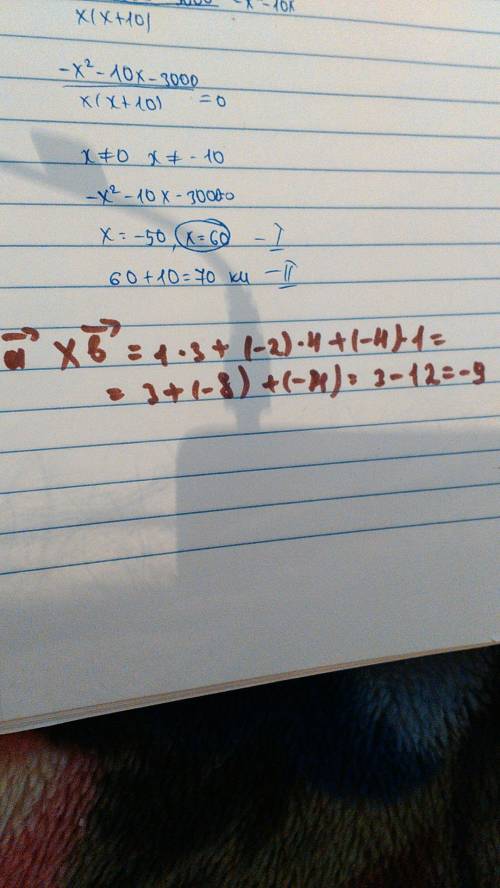 x(x+10)
-x² - 10x - 3000
x(x+10) =0
x≠0 x≠-10
-x² - 10x - 30000
x = -50, x=60 - I
60+10=70 км - II
a⃗ × b⃗ = 1·3 + (-2)·4 + (-4)·1 =
= 3 + (-8) + (-4) = 3 - 12 = -9